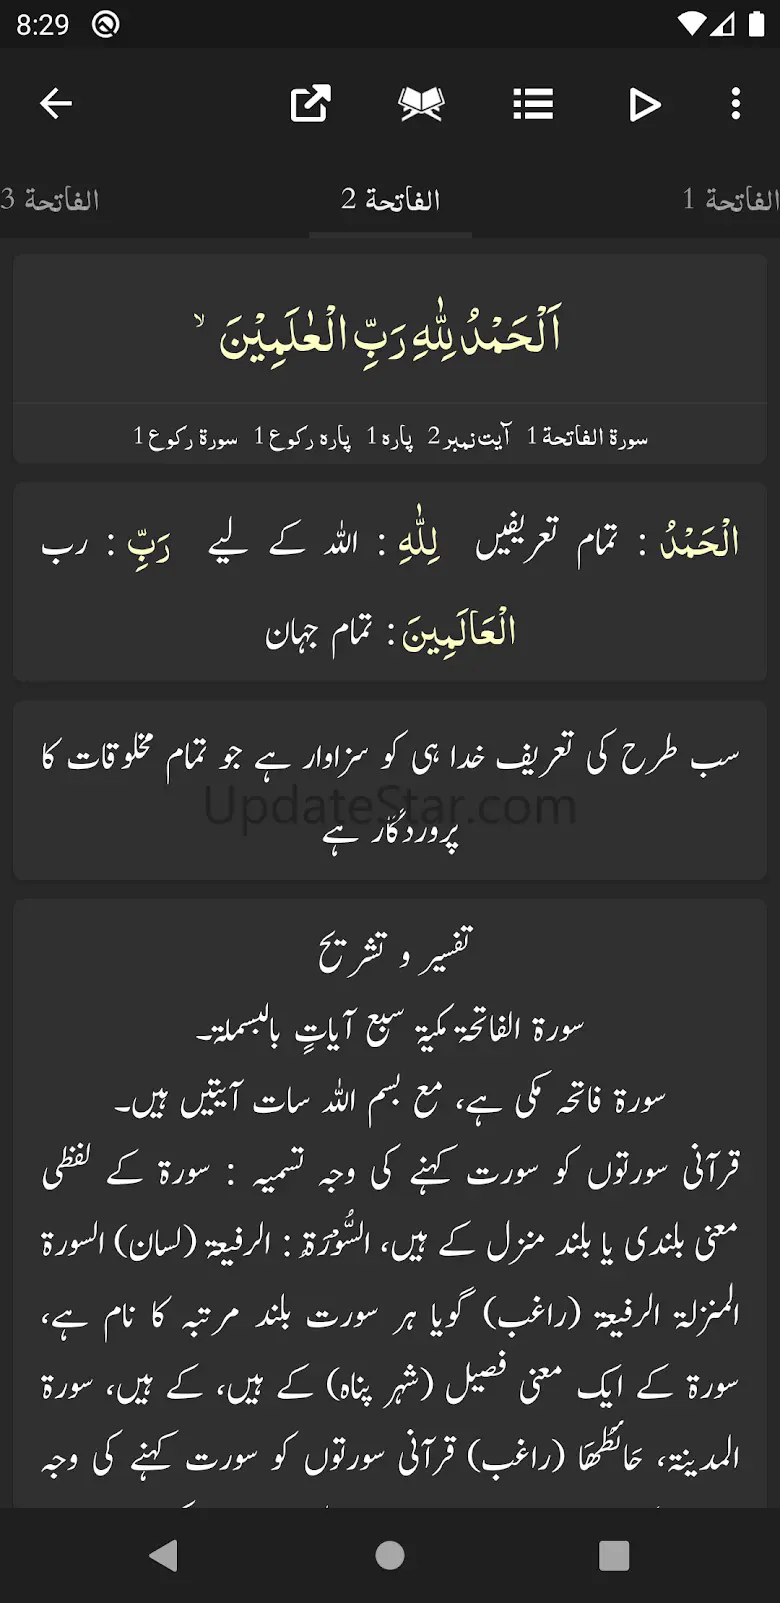 8:29
الفاتحة 1
الفاتحة 2
الفاتحة 3
اَلْحَمْدُ لِلّٰهِ رَبِّ الْعٰلَمِیْنَ ۙ
سورۃ الفاتحۃ 1 آیت نمبر 2 پارہ 1 پارہ رکوع 1 سورۃ رکوع 1
الْحَمْدُ : تمام تعریفیں لِلّٰهِ : اللہ کے لیے رَبِّ : رب
الْعَالَمِينَ : تمام جہان
سب طرح کی تعریف خدا ہی کو سزاوار ہے جو تمام مخلوقات کا
پروردگار ہے
UpdateStar.com
تفسیر و تشریح
سورۃ الفاتحۃ مکیۃ سبع آیاتٍ بالبسملۃ۔
سورۃ فاتحہ مکی ہے، مع بسم اللہ سات آیتیں ہیں۔
قرآنی سورتوں کو سورت کہنے کی وجہ تسمیہ : سورۃ کے لفظی
معنی بلندی یا بلند منزل کے ہیں، السُّوْرَۃ : الرفیعۃ (لسان) السورۃ
المنزلۃ الرفیعۃ (راغب) گویا ہر سورت بلند مرتبہ کا نام ہے،
سورۃ کے ایک معنی فصیل (شہر پناہ) کے ہیں، کے ہیں، سورۃ
المدینۃ، حَائطُھَا (راغب) قرآنی سورتوں کو سورت کہنے کی وجہ